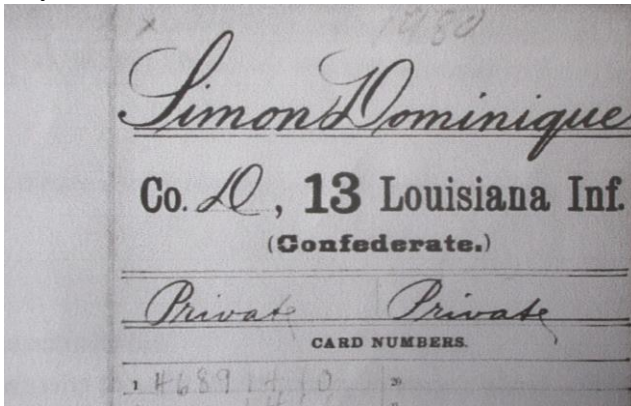 x 1480
Simon Dominique
Co. D, 13 Louisiana Inf.
(Confederate.)
Private Private
CARD NUMBERS.
1 46891410 20